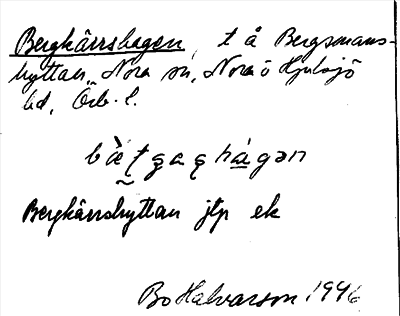 Bergkärrshagen, t å Bergsmans-
hyttan, Nora sn, Nora o Hjulsjö
bd, Örb. l.
Bergkärrshyttan jfp ek
Bo Halvarson 1946